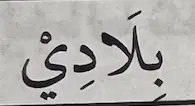 بِلَادِيْ